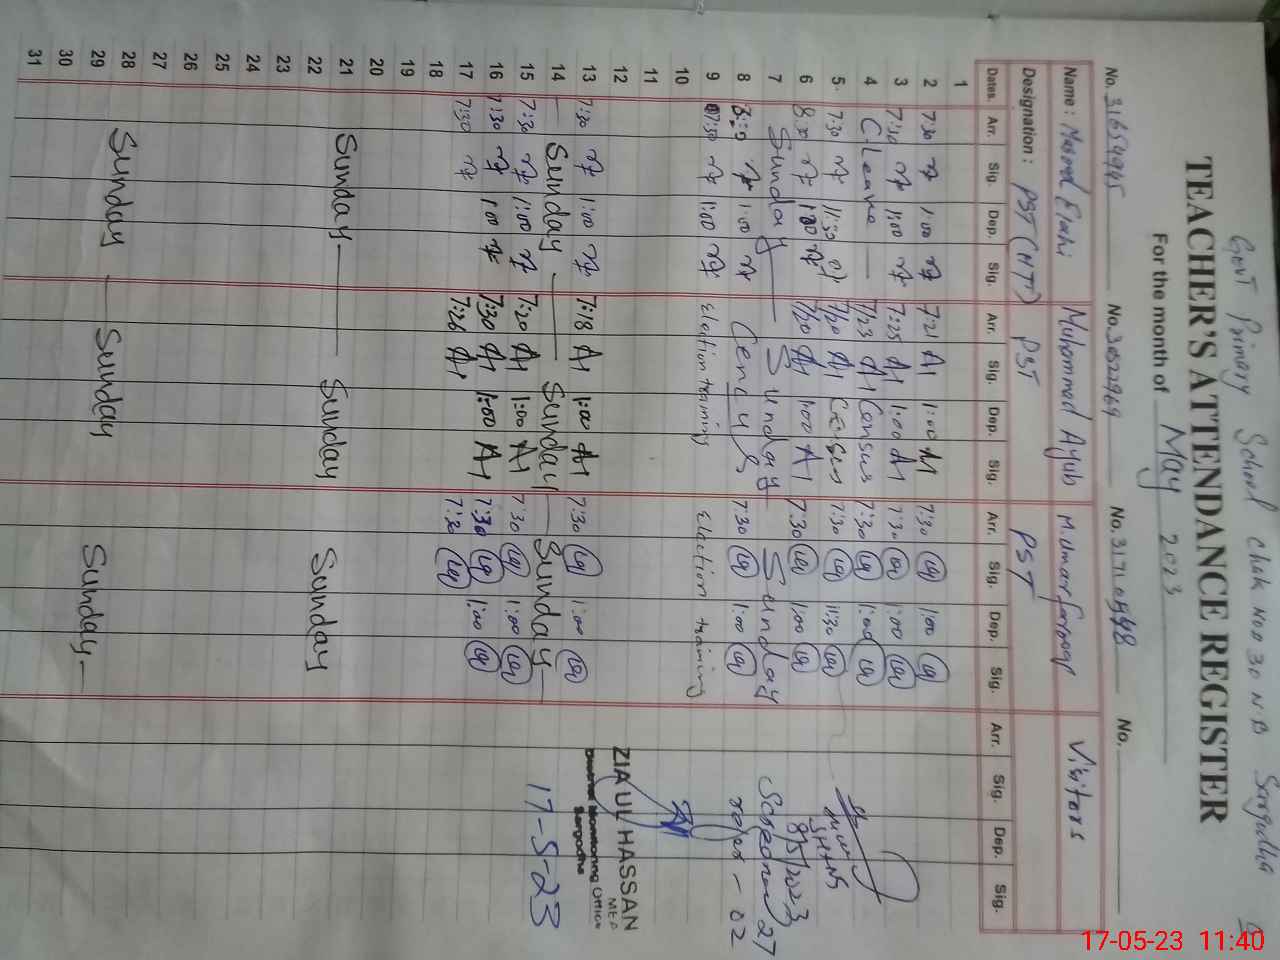 Govt Primary School chak No 30 NB Sargodha
TEACHER'S ATTENDANCE REGISTER
For the month of May 2023
No. 31654945 No. 3052969 No. No.
Name: Masood Elahi Muhammad Ayub M. Umar Farooq Visitors
Designation: PST PST PST
Dates. Arr. Sig. Dep. Sig. Arr. Sig. Dep. Sig. Arr. Sig. Dep. Sig. Arr. Sig. Dep. Sig.
1
2 7:30 1:00 7:21 1:00 7:30 1:00
3 7:30 1:00 7:25 1:00 7:30 1:00
4 7/23 Consus 7:30 1:00
5 7:30 11:30 7/20 7:30 11:30
6 1:00 7/20 1:00 7:30 1:00
7 Sunday Sunday Sunday
8 8:00 1:00 Cencus 7:30 1:00
9 07:30 1:00 elaction training elaction training
10
11
12
13 7:30 1:00 7:18 1:00 7:30 1:00
14 Sunday Sunday Sunday
15 7:30 1:00 7:20 1:00 7:30 1:00
16 7:30 1:00 7:30 1:00 7:30 1:00
17 7:30 7:26 7:30
18
19
20
21 Sunday Sunday Sunday
22
23
24
25
26
27
28 Sunday Sunday Sunday
29
30
31
8/5/2023
ZIA UL HASSAN
MEA
District Monitoring Officer
Sargodha
17-5-23
17-05-23 11:40